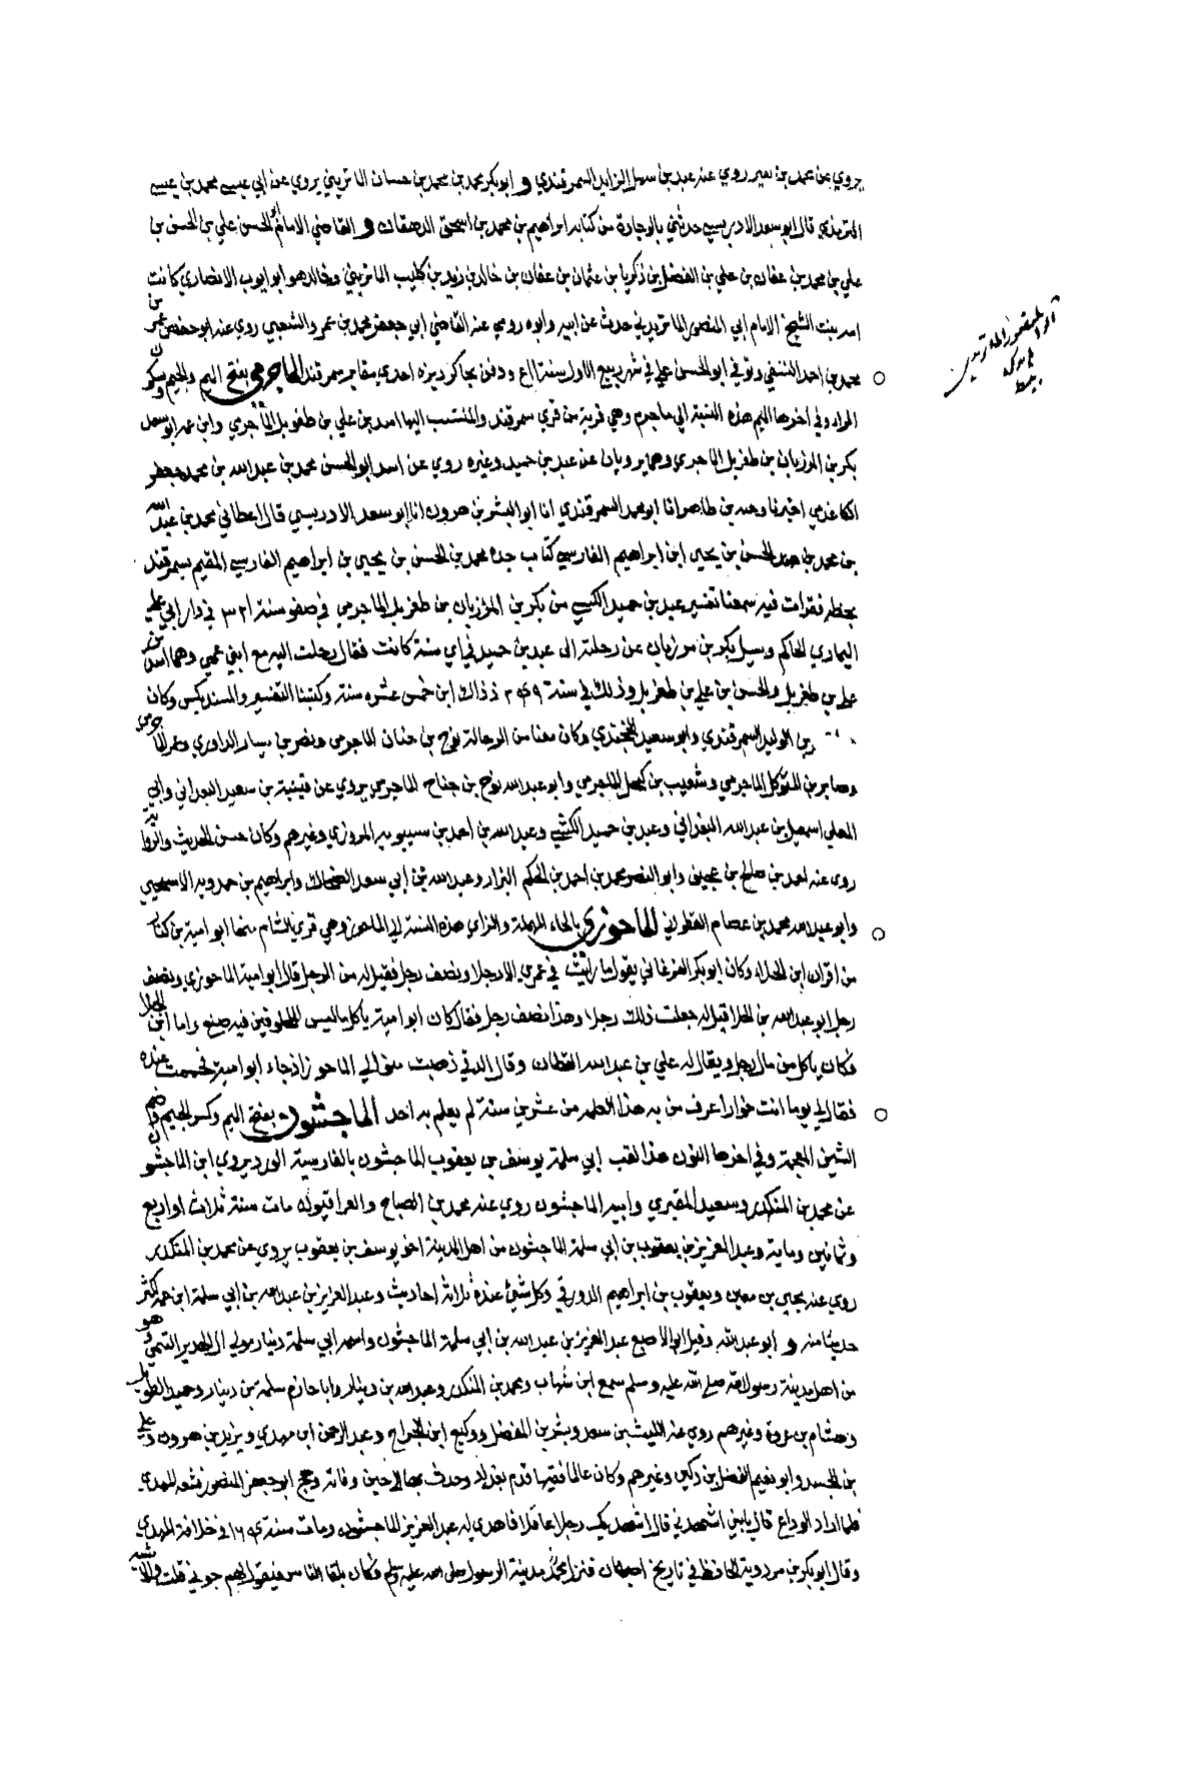 يروي عن محمد بن نصير روي عنه عبد بن سهل الزاهد السمرقندي و ابو بكر محمد بن محمد بن حسان الماتريتي يروي عن ابي عيسى محمد بن عيسى
الترمذي قال ابو سعد الادريسي حدثني بالوجادة من كتابه ابراهيم بن محمد بن اسحق الدهقان و القاضي الامام ابو الحسن علي بن الحسن بن
علي بن محمد بن عفان بن علي بن الفضل بن زكريا بن عثمان بن عفان بن خالد بن زيد بن كليب الماتريتي وخالد هو ابو ايوب الانصاري كانت
امه بنت الشيخ الامام ابي المنصور الماتريدي حدث عن ابيه وابوه روي عنه القاضي ابي جعفر محمد بن عمرو الشعبي روي عنه ابو حفص عمر بن
محمد بن احمد النسفي وتوفي ابو الحسن علي في شهر ربيع الاول سنة ٥١١ ودفن بجاكرديزه احدي مقابر سمرقند الماجرمي بفتح الميم والجيم وسكون
الراء وفي اخرها الميم هذه النسبة الي ماجرم وهي قرية من قري سمرقند والمنتسب اليها اسد بن علي بن طغريل الماجرمي وابن عمه ابو سهل
بكر بن المرزبان بن طغريل الماجرمي وهما يرويان عن عبد بن حميد وغيره روي عن اسد ابو الحسن محمد بن عبد الله بن محمد جعفر
الكاغدي اخبرنا وجيه بن طاهر انا ابو محمد السمرقندي انا ابو البشر بن هرون انا ابو سعد الادريسي قال اعطاني محمد بن عبد الله
بن محمد بن محمد الحسن بن يحيى ابن ابراهيم الفارسي كتاب جده محمد بن الحسن بن يحيى بن ابراهيم الفارسي المقيم بسمرقند
بخطه فقرات فيه سمعنا تفسير عبد بن حميد الكسي من بكر بن المرزبان بن طغريل الماجرمي في صفر سنة في دار ابي علي
اليماوي الحاكم وسيل بكر بن مرزبان عن رحلته الى عبد بن حميد في اي سنة كانت فقال رحلت اليه مع ابني عمي وهما اسد بن
علي بن طغريل والحسن بن علي بن طغريل وذلك في سنة ٢٤٩ ذ ذاك ابن خمس عشره سنة وكتبنا التفسير والمسند بكس وكان
بن الوليد السمرقندي وابو سعيد الخجندي وكان معنا من الرحالة نوح بن جنان الماجرمي ونصر بن سيار الداوري وعمر الماجرمي
وصابر بن المتوكل الماجرمي وشعيب بن كهمل الماجرمي وابو عبد الله نوح بن جناح الماجرمي يروي عن قتيبة بن سعيد البغدادي وابي
المعلي اسمعيل بن عبد الله البغدادي وعبد بن حميد الكشي وعبد الله بن احمد بن سيبويه المروزي وغيرهم وكان حسن الحديث والرواية
روى عنه احمد بن صالح بن عجيف وابو النصر محمد بن احمد بن الحكم البزار وعبد الله بن ابي سعد الضحاك وابراهيم بن حمدويه الاشتيخني
وابو عبد الله محمد بن عصام القطواني الماحوزي بالحاء المهملة والزاي هذه النسبة الي الماحوز وهي قري بالشام منها ابو امية بن كتاب
من اقران ابن الجلاء وكان ابو بكر الفرغاني يقول ما رايت في عمري الا رجلا ونصف رجل فقيل له من الرجل قال ابو امية الماحوزي ونصف
رجل ابو عبد الله بن الجلا قيل له جعلت ذلك رجلا وهذا نصف رجل فقال كان ابو امية ياكل ما ليس للمخلوقين فيه صنع واما ابن الجلا
فكان ياكل من مال رجل ويقال له علي بن عبد الله القطان وقال الدقي ذهبت الي الماحوز اذ جاء ابو امية عنده
فقال لي يوما انت اعرف من به هذا العله من عشرين سنة لم يعلم به احد الماجشون بفتح الميم وكسر الجيم وضم
الشين المعجمة وفي اخرها النون هذا لقب ابي سلمة يوسف بن يعقوب الماجشون بالفارسية الورد يروي ابن الماجشون
عن محمد بن المنكدر وسعيد المقبري وابيه الماجشون روي عنه محمد بن الصباح والعراقيون مات سنة ثلاث او اربع
وثمانين وماية وعبد العزيز بن يعقوب بن ابي سلمة الماجشون من اهل المدينة اخو يوسف بن يعقوب يروي عن محمد بن المنكدر
روي عنه يحيى بن معين ويعقوب بن ابراهيم الدورقي وكل شيئ عنده ثلاثة احاديث وعبد العزيز بن عبد الله بن ابي سلمة ابن عمه اكثر
حديثا منه و ابو عبد الله وقيل ابو الاصبع عبد العزيز بن عبد الله بن ابي سلمة الماجشون واسم ابي سلمة دينار مولي ال الهدير التيمي هو
من اهل مدينة رسول الله صلى الله عليه وسلم سمع ابن شهاب ومحمد بن المنكدر وعبد الله بن دينار وابا حازم سلمة بن دينار وحميد الطويل
وهشام بن عروة وغيرهم روي عنه الليث بن سعد وبشر بن المفضل ووكيع ابن الجراح وعبد الرحمن ابن مهدي ويزيد بن هرون وعلي
بن الجعد وابو نعيم الفضل بن دكين وغيرهم وكان عالما فقيها قدم بغداد وحدث بها الي حين وفاته وحج ابو جعفر المنصور فشيعه المهدي
فلما اراد الوداع قال يابني استهدني قال استهديك رجلا عاقلا فاهدي له عبد العزيز الماجشون ومات سنة ١٦٤ في خلافة المهدي
وقال ابو بكر بن مردوية الحافظ في تاريخ اصبهان فنزل مدينة الرسول صلى الله عليه وسلم فكان يلقا الناس فيقول لهم جوني قلت والاشبه
ابو المنصور الماتريدي